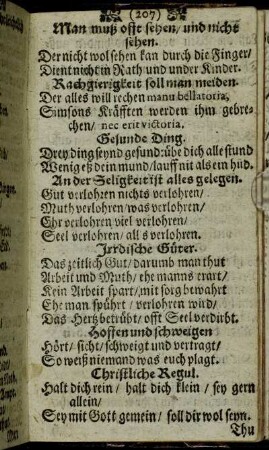 (207)
Man muß offt sehen/ und nicht
sehen.
Der nicht wol sehen kan durch die Finger/
Dient nicht in Rath und under Kinder.
Rachgierigkeit soll man meiden.
Der alles will rechen manu bellatoria;
Simsons Kräfften werden ihm gebre-
chen/ nec erit victoria.
Gesunde Ding.
Drey ding seynd gesund: übe dich alle stund
Wenig eß dein mund/ lauff nit als ein hūd.
An der Seligkeit ist alles gelegen.
Gut verlohren nichts verlohren/
Muth verlohren/ was verlohren/
Ehr verlohren viel verlohren/
Seel verlohren/ alls verlohren.
Irrdische Güter.
Das zeitlich Gut/ darumb man thut
Arbeit und Muth/ ehe manns erart/
Kein Arbeit spart/ mit sorg bewahrt
Ehe man spührt/ verlohren wird/
Das Hertz betrübt/ offt Seel verdirbt.
Hoffen und schweigen
Hört/ sicht/ schweigt und vertragt/
So weiß niemand was euch plagt.
Christliche Regul.
Halt dich rein/ halt dich klein/ sey gern
allein/
Sey mit Gott gemein/ soll dir wol seyn.
Thu